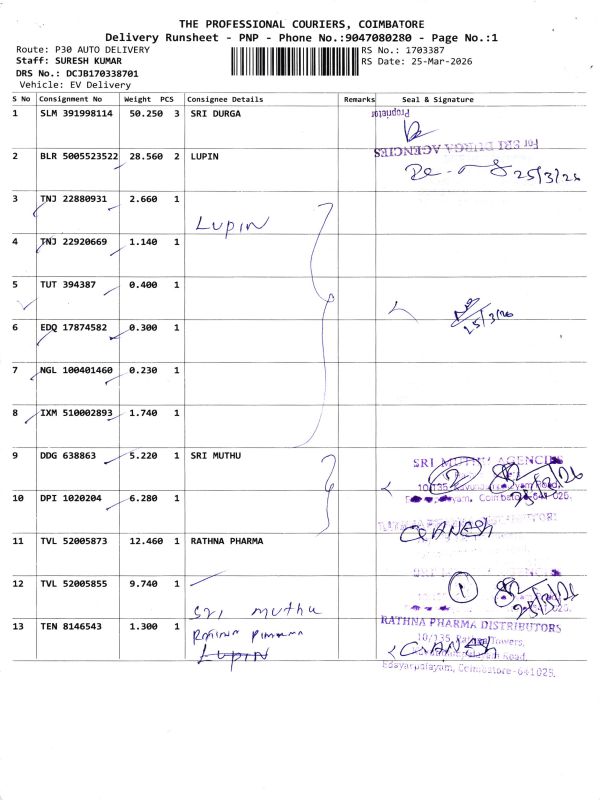 THE PROFESSIONAL COURIERS, COIMBATORE
Delivery Runsheet - PNP - Phone No.:9047080280 - Page No.:1
Route: P30 AUTO DELIVERY RS No.: 1703387
Staff: SURESH KUMAR RS Date: 25-Mar-2026
DRS No.: DCJB170338701
Vehicle: EV Delivery
S No Consignment No Weight PCS Consignee Details Remarks Seal & Signature
1 SLM 391998114 50.250 3 SRI DURGA
Proprietor
For SRI DURGA AGENCIES
2 BLR 5005523522 28.560 2 LUPIN
25/3/26
3 TNJ 22880931 2.660 1
Lupin
4 TNJ 22920669 1.140 1
5 TUT 394387 0.400 1
25/3/26
6 EDQ 17874582 0.300 1
7 NGL 100401460 0.230 1
8 IXM 510002893 1.740 1
9 DDG 638863 5.220 1 SRI MUTHU
SRI MUTHU AGENCIES
2
10/135,
Coimbatore-641 025.
10 DPI 1020204 6.280 1
GANESH
11 TVL 52005873 12.460 1 RATHNA PHARMA
12 TVL 52005855 9.740 1
1
25/3/26
Sri muthu
13 TEN 8146543 1.300 1
RATHNA PHARMA DISTRIBUTORS
10/135, Rathna Towers,
GANESH
Road,
Lupin
Edayarpalayam, Coimbatore-641025.